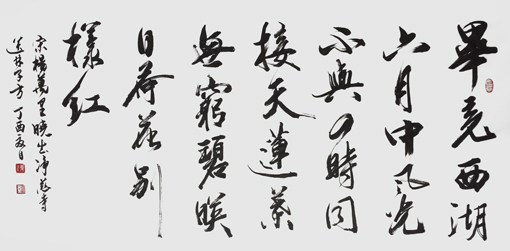 畢竟西湖
六月中風光
不與四時同
接天蓮葉
無窮碧映
日荷花別
樣紅
宋楊萬里曉出淨慈寺
送林子方 丁酉夏月